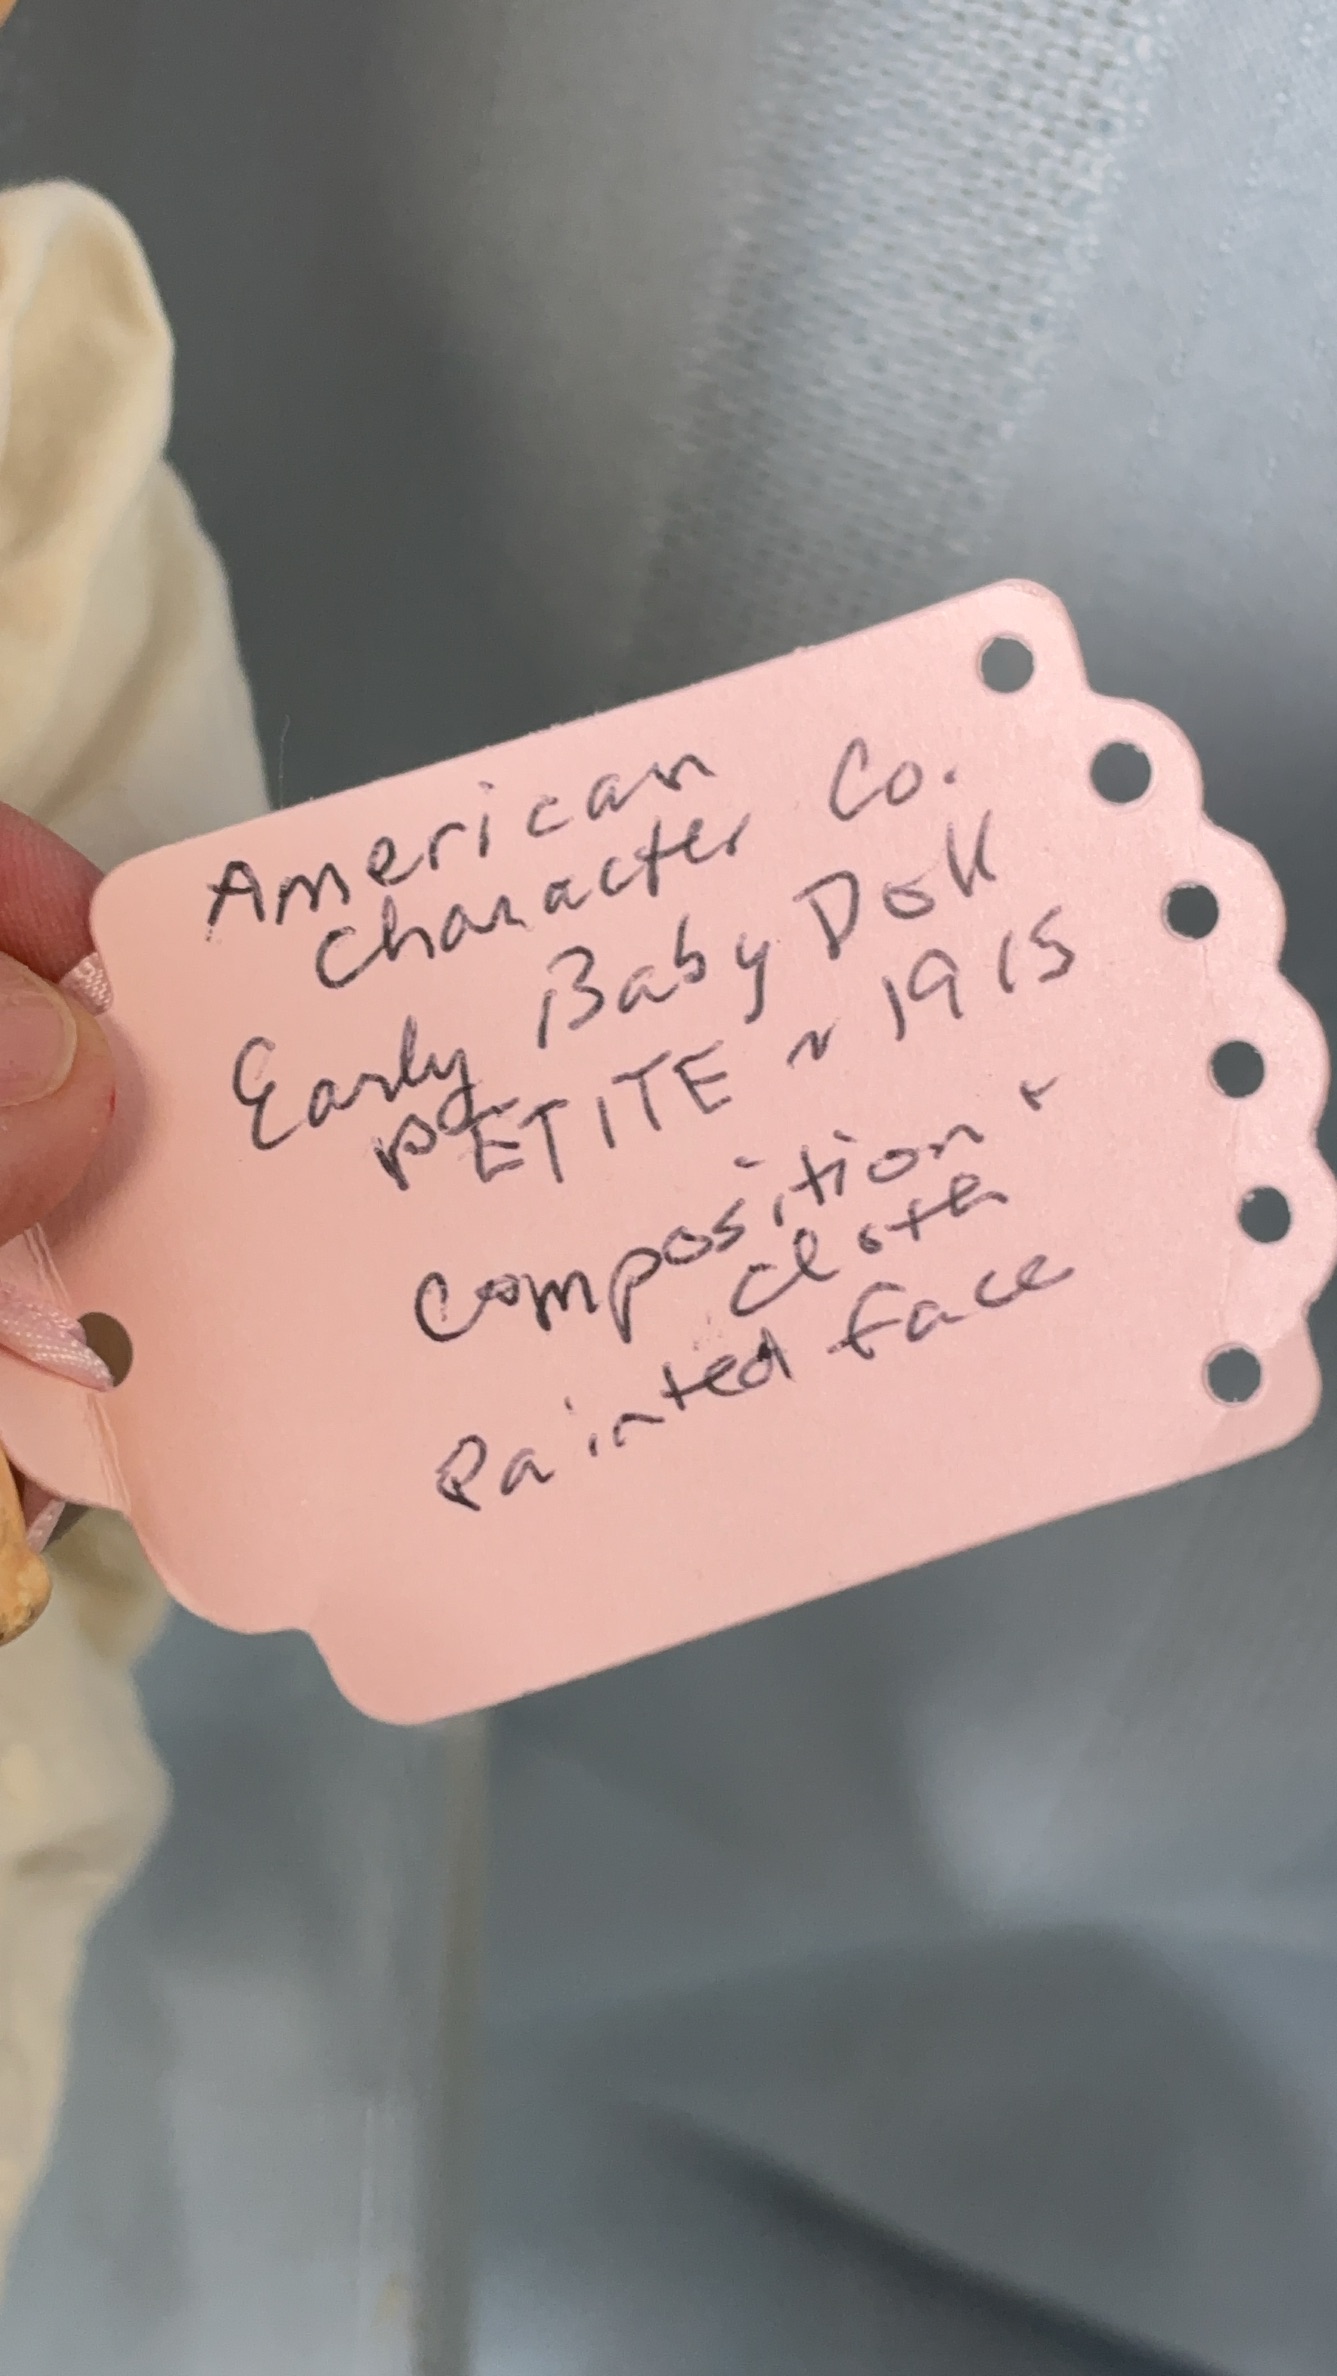 American
Character Co.
Early Baby Doll
PETITE ~ 1915
Composition +
Cloth
Painted face